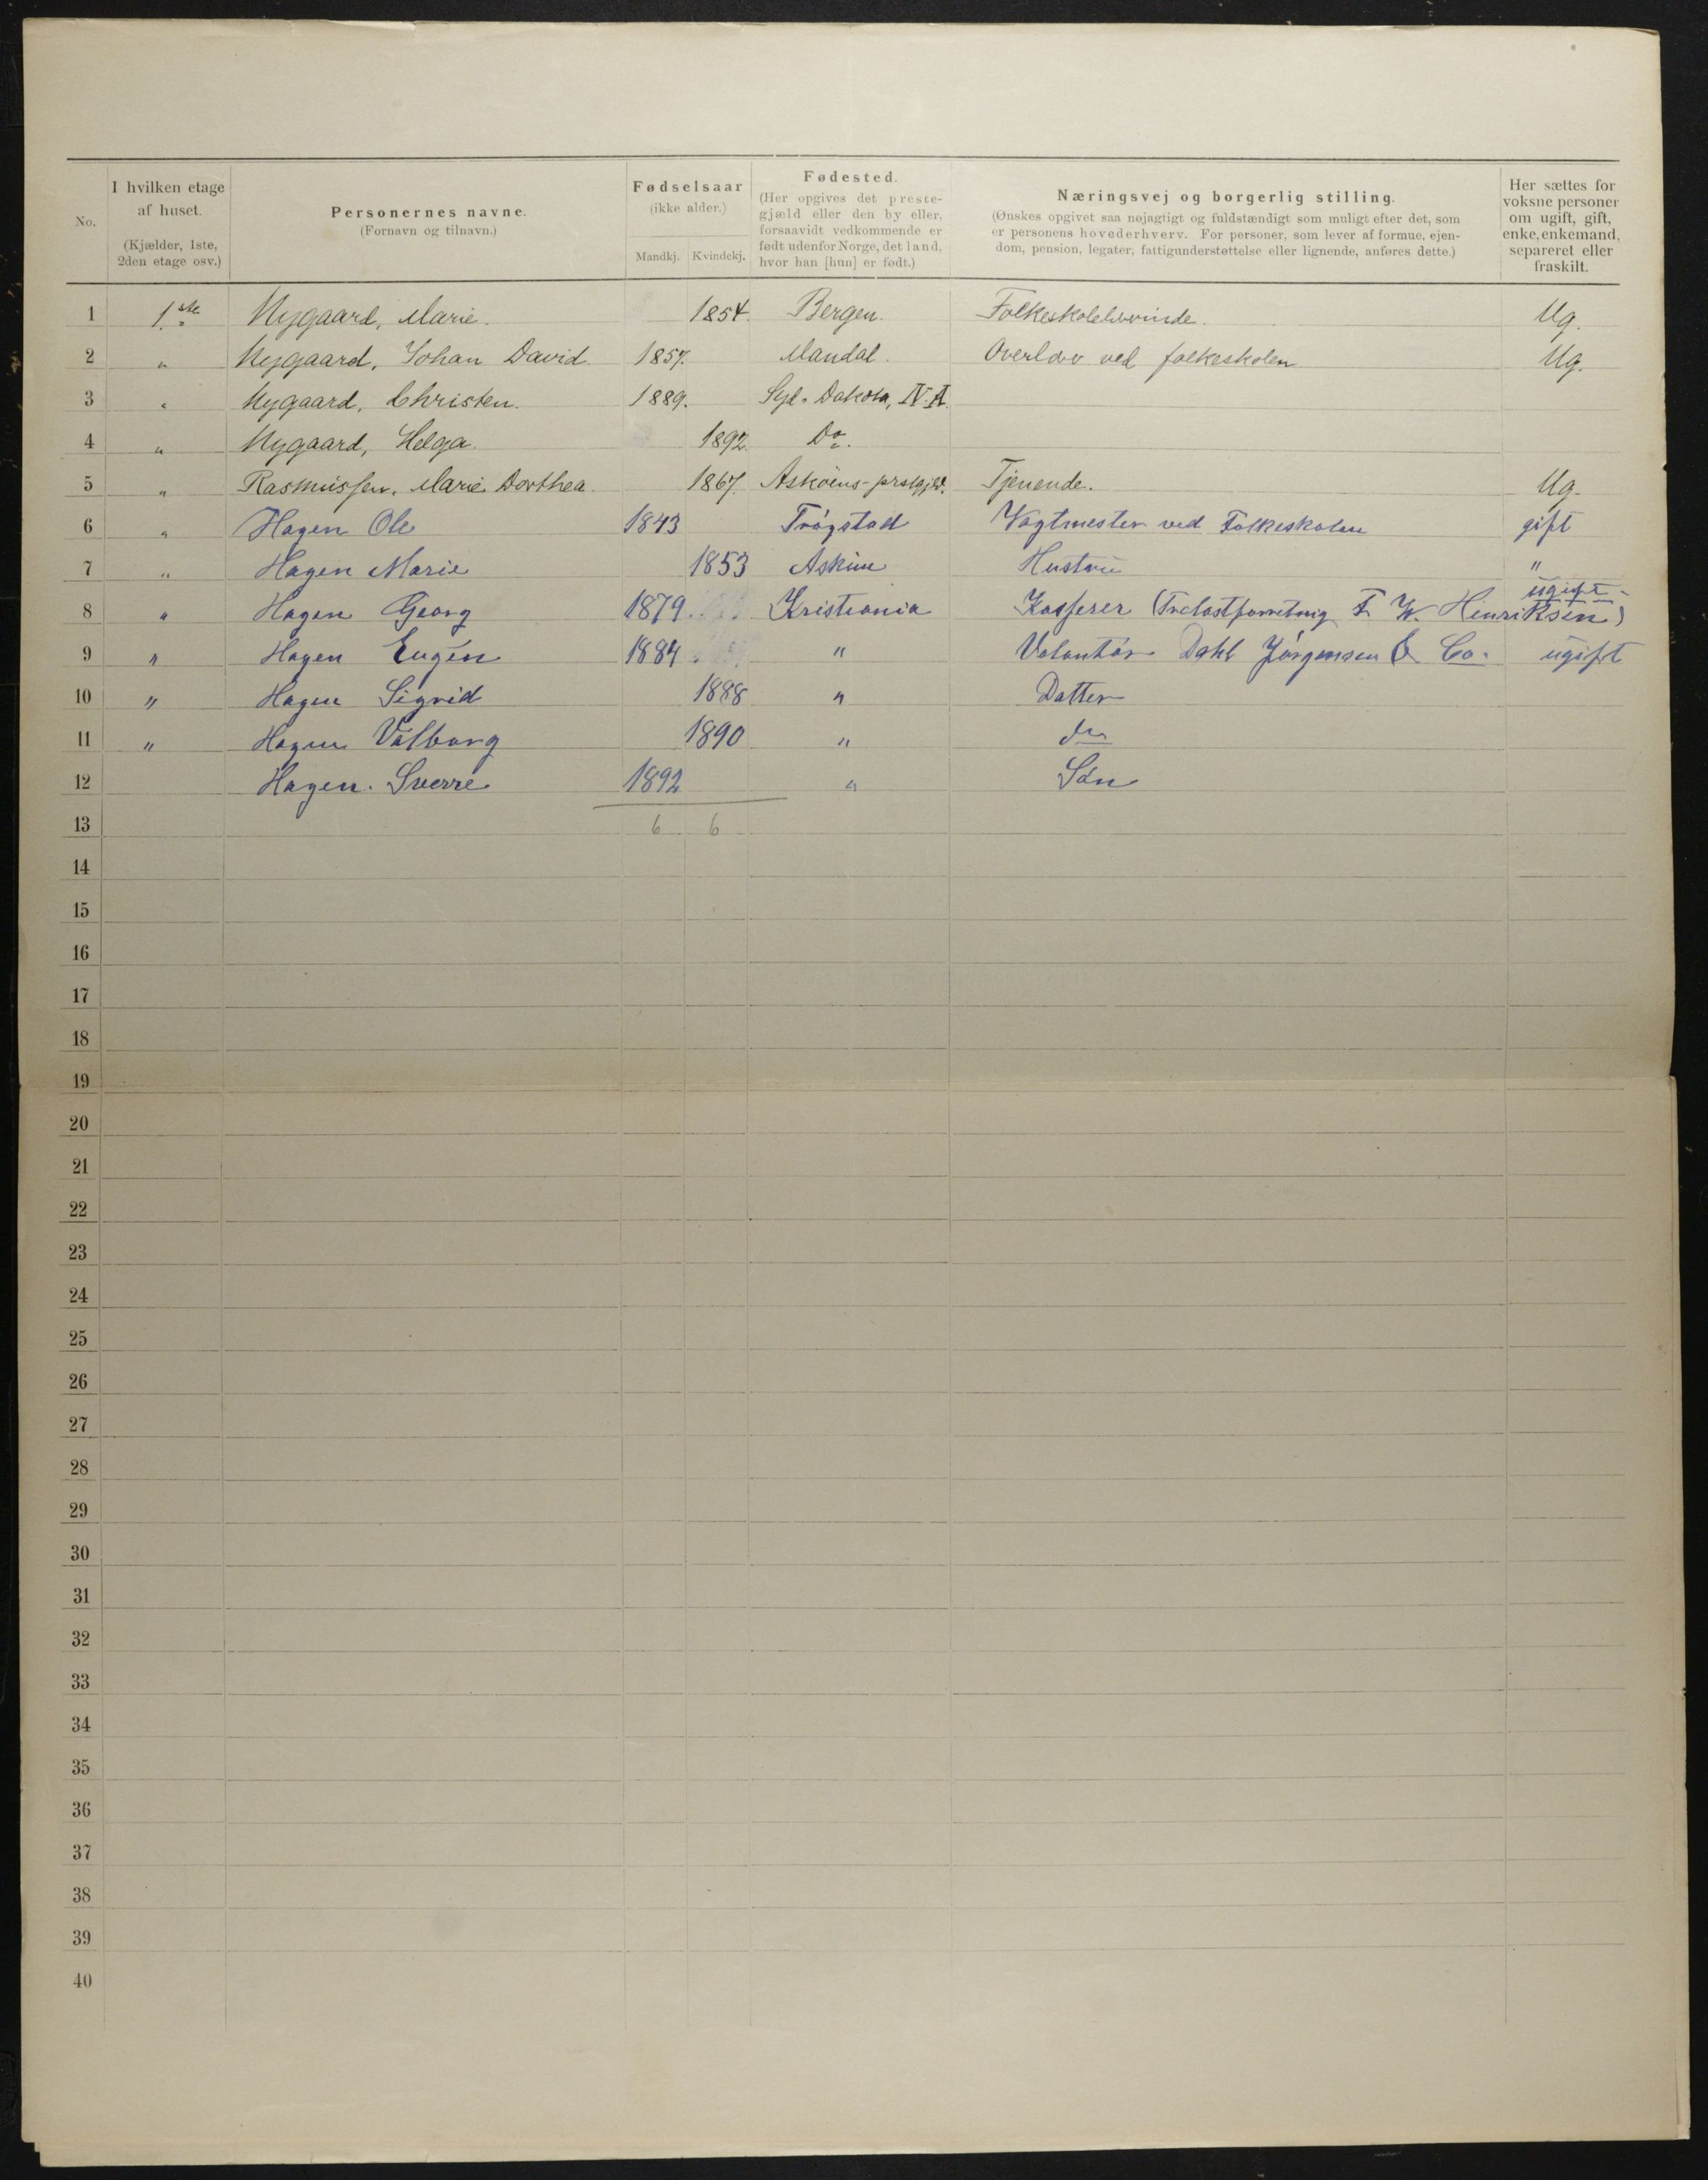 No.
I hvilken etage af huset. (Kjælder, 1ste, 2den etage osv.)
Personernes navne. (Fornavn og tilnavn.)
Fødselsaar (ikke alder.) Mandkj. Kvindekj.
Fødested. (Her opgives det prestegjæld eller den by eller, forsaavidt vedkommende er født udenfor Norge, det land, hvor han [hun] er født.)
Næringsvej og borgerlig stilling. (Ønskes opgivet saa nøjagtigt og fuldstændigt som muligt efter det, som er personens hovederhverv. For personer, som lever af formue, ejendom, pension, legater, fattigunderstøttelse eller lignende, anføres dette.)
Her sættes for voksne personer om ugift, gift, enke, enkemand, separeret eller fraskilt.
1 1.ste Nygaard, Marie. 1854. Bergen. Folkeskolelærerinde. Ug.
2 " Nygaard, Johan David. 1857. Mandal. Overlærer ved folkeskolen Ug.
3 " Nygaard, Christen. 1889. Syd-Dakota, N.A.
4 " Nygaard, Helga. 1892. Do.
5 " Rasmussen, Marie Dorthea. 1867. Askøens-prstgjld. Tjenende. Ug.
6 " Hagen Ole 1843 Trøgstad Vagtmester ved Folkeskolen gift
7 " Hagen Marie 1853 Askim Hustru "
8 " Hagen Georg 1879 Kristiania Kasserer (Trelastforretning F. W. Henriksen) ugift
9 " Hagen Eugén 1884 " Volontør Dahl Jørgensen & Co. ugift
10 " Hagen Sigrid 1888 " Datter
11 " Hagen Valborg 1890 " do
12 Hagen. Sverre 1892 " Søn
13 6 6
14
15
16
17
18
19
20
21
22
23
24
25
26
27
28
29
30
31
32
33
34
35
36
37
38
39
40